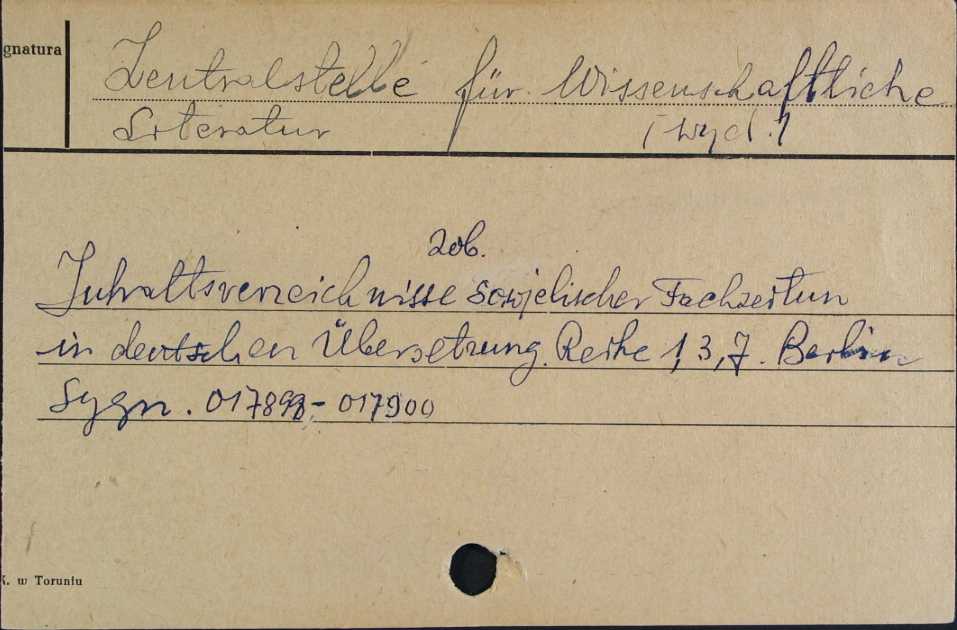 gnatura
Zentralstelle für Wissenschaftliche
Literatur [wyd.]
zob.
Inhaltsverzeichnisse sowjelischer Fachzeitun
in deutschen Übersetzung. Reihe 1,3,7. Berlin
Sygn. 017898-017900
K. w Toruniu